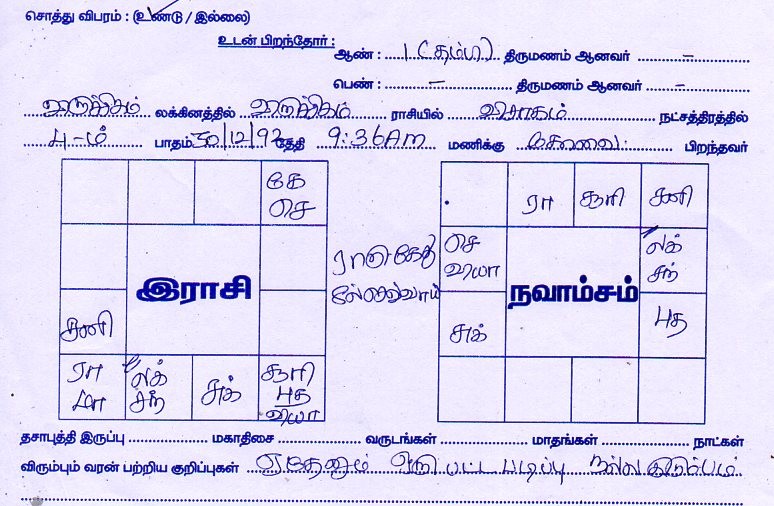 சொத்து விபரம் : (உண்டு / இல்லை)
உடன் பிறந்தோர் :
ஆண் : 1 (தம்பி) திருமணம் ஆனவர் –
பெண் : – திருமணம் ஆனவர் –
லக்கினத்தில் ராசியில் விசாகம் நட்சத்திரத்தில்
4-ம் பாதம் 30/12/92 தேதி 9:36AM மணிக்கு கோவை பிறந்தவர்
கே செ
ரா சூரி சனி
செ வியா லக் சந்
ராகு கேது செவ்வாய்
இராசி நவாம்சம்
சனி சுக் புத
ரா மா லக் சந் சுக் சூரி புத வியா
தசாபுத்தி இருப்பு மகாதிசை வருடங்கள் மாதங்கள் நாட்கள்
விரும்பும் வரன் பற்றிய குறிப்புகள் ஏதேனும் ஒரு பட்ட படிப்பு நல்ல குடும்பம்